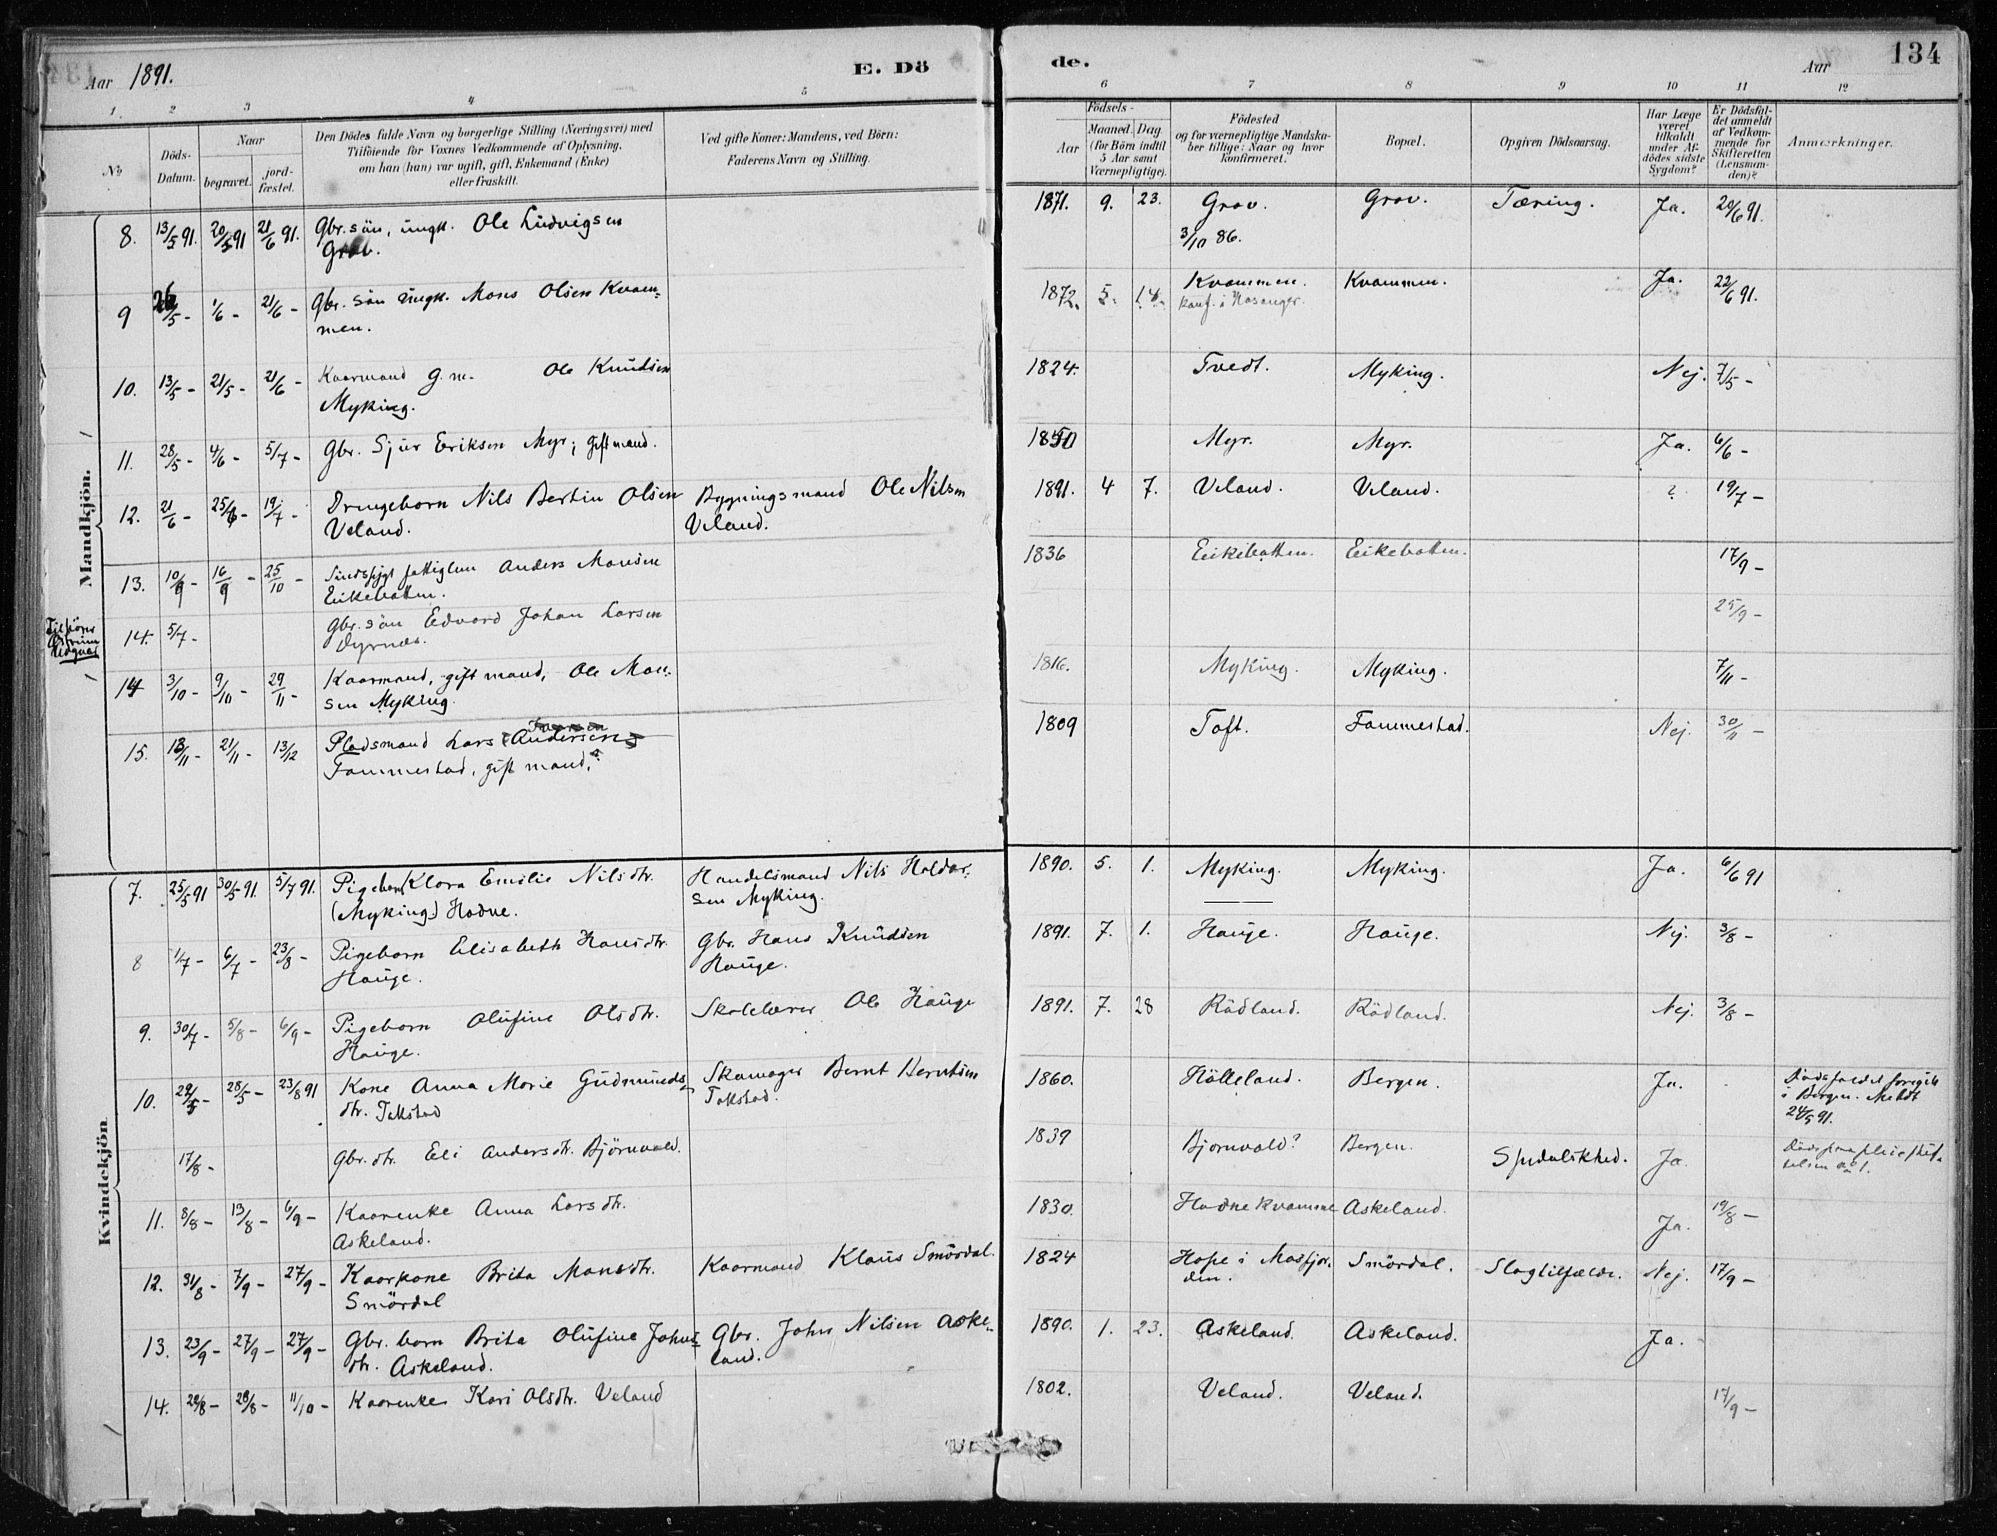 134
Aar 1891.
E. Dö
de.
Aar
1.
2
3
4
5
6
7
8
9
10
11
12
No
Döds-
Datum.
Naar
begravet.
jord-
fæstet.
Den Dödes fulde Navn og borgerlige Stilling (Næringsvei) med
Tilföiende for Voxnes Vedkommende af Oplysning,
om han (hun) var ugift, gift, Enkemand (Enke)
eller fraskilt.
Ved gifte Koner: Mandens, ved Börn:
Faderens Navn og Stilling.
Födsels-
Aar
Maaned.
Dag
(for Börn indtil
5 Aar samt
Værnepligtige).
Födested
og for værnepligtige Mandska-
ber tillige: Naar og hvor
konfirmeret.
Bopæl.
Opgiven Dödsaarsag.
Har Læge
været
tilkaldt
under Af-
dödes sidste
Sygdom?
Er Dödsfal-
det anmeldt
af Vedkom-
mende for
Skifteretten
(Lensman-
den)?
Anmærkninger.
Mandkjön.
8. 13/5 91. 20/5 91 21/6 91. Gbr. sön, ungk. Ole Ludvigsen 1871. 9. 23. Grov. Grov. Tæring. Ja. 20/6 91.
Grov. 3/10 86.
9 26/5 - 1/6 - 21/6 - Gbr. sön ungk. Mons Olsen Kvam- 1872. 5. 14. Kvammen. Kvammen. Ja. 22/6 91.
men. konf. i Hosanger.
10. 13/5 - 21/5 - 21/6 - Kaarmand g. m. Ole Knudsen 1824. Tvedt. Myking. Nej. 7/5 -
Myking.
11. 28/5 - 4/6 - 5/7 - Gbr. Sjur Eriksen Myr; gift mand. 1850 Myr. Myr. Ja. 6/6 -
12. 21/6 - 25/6 - 19/7 - Drengebarn Nils Bertin Olsen Bygningsmand Ole Nilsen 1891. 4 7. Veland. Veland. ? 19/7 -
Veland. Veland.
13. 10/9 - 16/9 - 25/10 - Sindssygt fattiglem Anders Monsen 1836 Eikebotten. Eikebotten. 17/9 -
Eikebotten.
Tilhörer
14. 5/7 - Gbr. sön Edvard Johan Larsen 25/9 -
Dyrnæs.
14 3/10 - 9/10 - 29/11 - Kaarmand, gift mand, Ole Mon- 1816. Myking. Myking. 7/11 -
sen Myking.
15. 13/11 - 21/11 - 13/12 Pladsmand Lars Andersen 1809 Toft. Fammestad. Nej. 30/11 -
Fammestad, gift mand.
Kvindekjön.
7. 25/5 91 30/5 91. 5/7 91. Pigebarn Klara Emilie Nilsdtr. Handelsmand Nils Haldor- 1890. 5. 1. Myking. Myking. Ja. 6/6 91
(Myking) Hodne. sen Myking.
8 1/7 - 6/7 - 23/8 - Pigebarn Elisabeth Hansdtr. Gbr. Hans Knudsen 1891. 7. 1. Hauge. Hauge. Nej. 3/8 -
Hauge. Hauge.
9. 30/7 - 5/8 - 6/9 - Pigebarn Olufine Olsdtr. Skolelærer Ole Hauge 1891. 7. 28 Rödland. Rödland. Nej. 3/8 -
Hauge.
10. 24/5 - 28/5 - 23/8 91 Kone Anna Marie Gudmunds- Skomager Bernt Berntsen 1860. Hölleland. Bergen. Ja. Dödsfaldet foregik
dtr. Takstad Takstad. i Bergen. Meldt
24/5 91.
17/8 - Gbr. dtr. Eli Andersdtr. Björnvald. 1839 Bjornvald? Bergen. Spedalskhed. Ja.
11. 8/8 - 13/8 - 6/9 - Kaarenke Anna Larsdtr. 1830. Hodne Kvamme Askeland. Ja. 19/8 -
Askeland.
12. 31/8 - 7/9 - 27/9 - Kaarkone Brita Monsdtr. Kaarmand Klaus Smördal. 1824 Hope i Masfjor- Smördal. Slagtilfælde. Nej. 17/9 -
Smördal den.
13. 23/9 - 27/9 - 27/9 - Gbr. barn Brita Olufine Johns- Gbr. John Nilsen Aske- 1890. 1. 23. Askeland. Askeland. Ja.
dtr. Askeland. land.
14. 22/8 - 28/8 - 11/10 - Kaarenke Kari Olsdtr. Veland 1802. Veland. Veland. 17/9 -